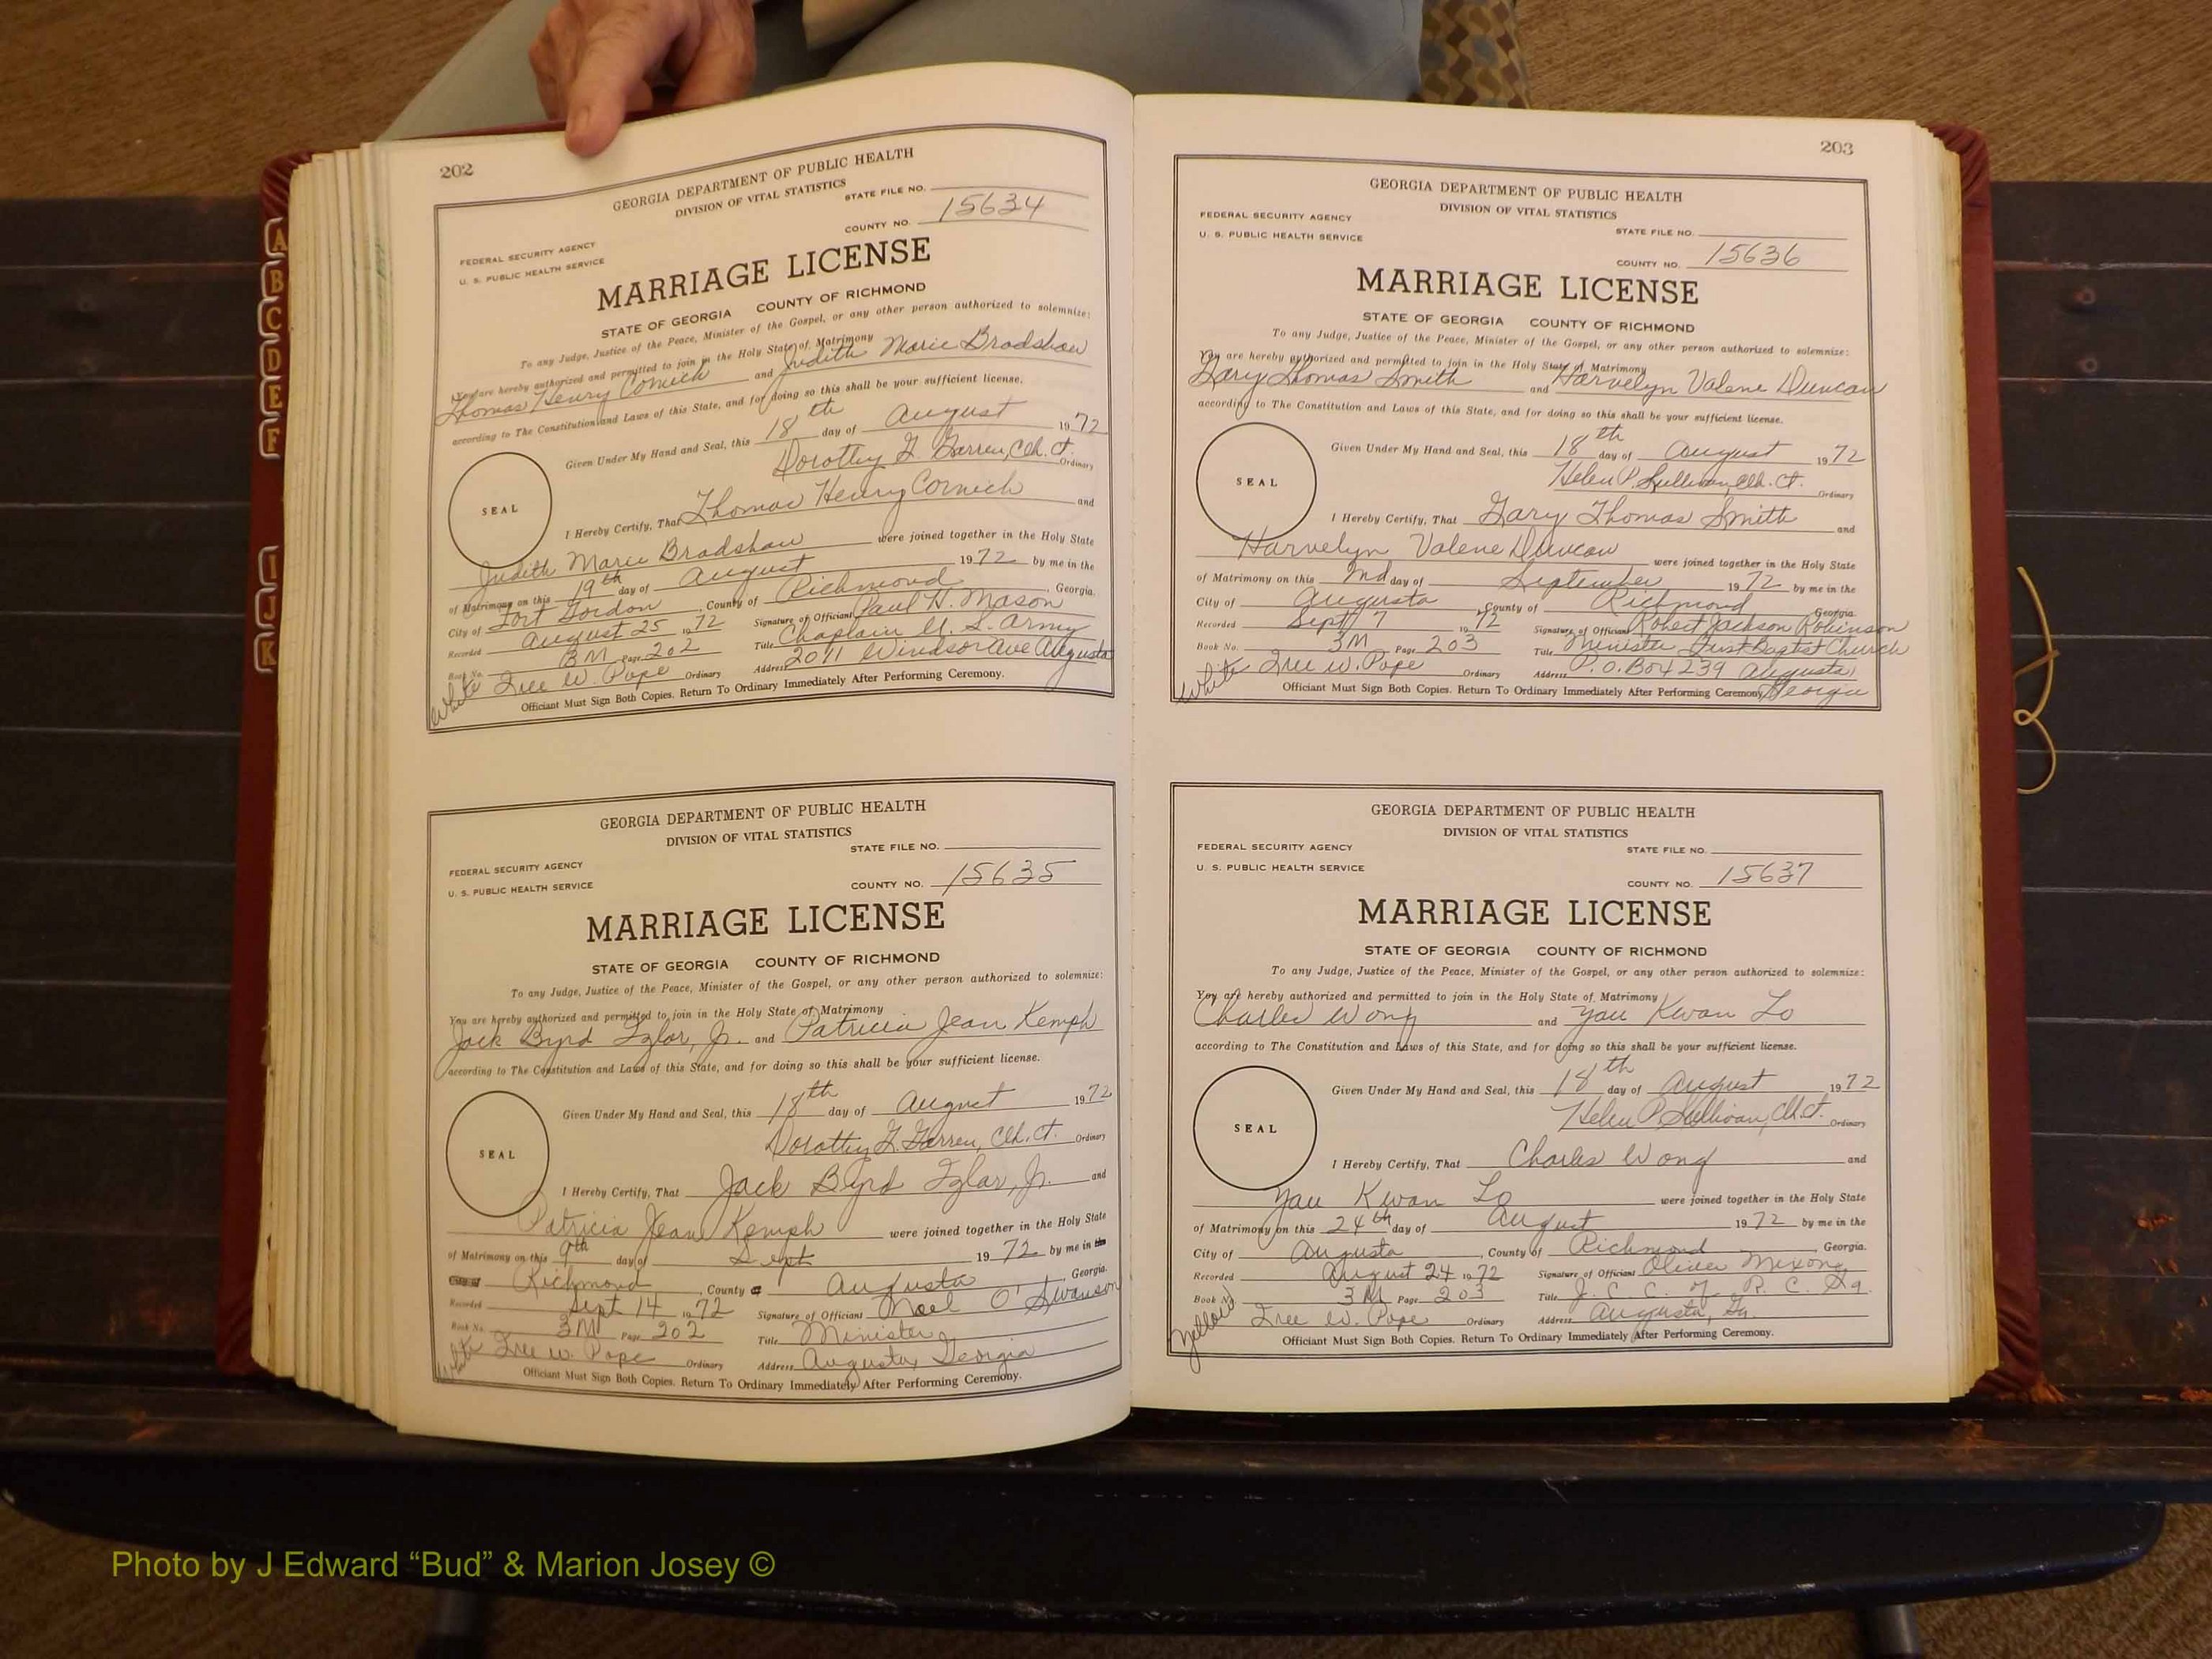 A
B
C
D
E
F
I
J
K
202
GEORGIA DEPARTMENT OF PUBLIC HEALTH
DIVISION OF VITAL STATISTICS
STATE FILE NO.
FEDERAL SECURITY AGENCY
U. S. PUBLIC HEALTH SERVICE
COUNTY NO. 15634
MARRIAGE LICENSE
STATE OF GEORGIA COUNTY OF RICHMOND
To any Judge, Justice of the Peace, Minister of the Gospel, or any other person authorized to solemnize:
You are hereby authorized and permitted to join in the Holy State of Matrimony
Thomas Henry Cornich and Judith Marie Bradshaw
according to The Constitution and Laws of this State, and for doing so this shall be your sufficient license.
Given Under My Hand and Seal, this 18th day of August 1972
Dorothy G. Garren, Clk. Ct. Ordinary
SEAL
I Hereby Certify, That Thomas Henry Cornich and
Judith Marie Bradshaw were joined together in the Holy State
of Matrimony on this 19th day of August 1972 by me in the
City of Fort Gordon, County of Richmond, Georgia.
Recorded August 25 1972 Signature of Officiant Paul H. Mason
Book No. 3M Page 202 Title Chaplain U. S. Army
White Tree W. Pope Ordinary Address 2011 Windsor Ave Augusta
Officiant Must Sign Both Copies. Return To Ordinary Immediately After Performing Ceremony.
GEORGIA DEPARTMENT OF PUBLIC HEALTH
DIVISION OF VITAL STATISTICS
STATE FILE NO.
FEDERAL SECURITY AGENCY
U. S. PUBLIC HEALTH SERVICE
COUNTY NO. 15635
MARRIAGE LICENSE
STATE OF GEORGIA COUNTY OF RICHMOND
To any Judge, Justice of the Peace, Minister of the Gospel, or any other person authorized to solemnize:
You are hereby authorized and permitted to join in the Holy State of Matrimony
Jack Byrd Izlar, Jr. and Patricia Jean Kemph
according to The Constitution and Laws of this State, and for doing so this shall be your sufficient license.
Given Under My Hand and Seal, this 18th day of August 1972
Dorothy G. Garren, Clk. Ct. Ordinary
SEAL
I Hereby Certify, That Jack Byrd Izlar, Jr. and
Patricia Jean Kemph were joined together in the Holy State
of Matrimony on this 9th day of Sept 1972 by me in the
City of Richmond, County of Augusta, Georgia.
Recorded Sept 14 1972 Signature of Officiant Noel O' Swanson
Book No. 3M Page 202 Title Minister
White Tree W. Pope Ordinary Address Augusta, Georgia
Officiant Must Sign Both Copies. Return To Ordinary Immediately After Performing Ceremony.
203
GEORGIA DEPARTMENT OF PUBLIC HEALTH
DIVISION OF VITAL STATISTICS
FEDERAL SECURITY AGENCY
U. S. PUBLIC HEALTH SERVICE
STATE FILE NO.
COUNTY NO. 15636
MARRIAGE LICENSE
STATE OF GEORGIA COUNTY OF RICHMOND
To any Judge, Justice of the Peace, Minister of the Gospel, or any other person authorized to solemnize:
You are hereby authorized and permitted to join in the Holy State of Matrimony
Gary Thomas Smith and Harvelyn Valene Duncan
according to The Constitution and Laws of this State, and for doing so this shall be your sufficient license.
Given Under My Hand and Seal, this 18th day of August 1972
Helen P. Sullivan, Clk. Ct. Ordinary
SEAL
I Hereby Certify, That Gary Thomas Smith and
Harvelyn Valene Duncan were joined together in the Holy State
of Matrimony on this 2nd day of September 1972 by me in the
City of Augusta, County of Richmond Georgia.
Recorded Sept 7 1972 Signature of Officiant Robert Jackson Robinson
Book No. 3M Page 203 Title Minister First Baptist Church
White Tree W. Pope Ordinary Address P.O. Box 239 Augusta,
Georgia
Officiant Must Sign Both Copies. Return To Ordinary Immediately After Performing Ceremony.
GEORGIA DEPARTMENT OF PUBLIC HEALTH
DIVISION OF VITAL STATISTICS
FEDERAL SECURITY AGENCY
U. S. PUBLIC HEALTH SERVICE
STATE FILE NO.
COUNTY NO. 15637
MARRIAGE LICENSE
STATE OF GEORGIA COUNTY OF RICHMOND
To any Judge, Justice of the Peace, Minister of the Gospel, or any other person authorized to solemnize:
You are hereby authorized and permitted to join in the Holy State of Matrimony
Charles Wong and Yau Kwan Lo
according to The Constitution and Laws of this State, and for doing so this shall be your sufficient license.
Given Under My Hand and Seal, this 18th day of August 1972
Helen P. Sullivan, Clk. Ct. Ordinary
SEAL
I Hereby Certify, That Charles Wong and
Yau Kwan Lo were joined together in the Holy State
of Matrimony on this 24th day of August 1972 by me in the
City of Augusta, County of Richmond, Georgia.
Recorded August 24 1972 Signature of Officiant Oliver Mixon
Book No. 3M Page 203 Title J. C. C. of R. C. Ga.
Yellow Tree W. Pope Ordinary Address Augusta, Ga.
Officiant Must Sign Both Copies. Return To Ordinary Immediately After Performing Ceremony.
Photo by J Edward “Bud” & Marion Josey ©